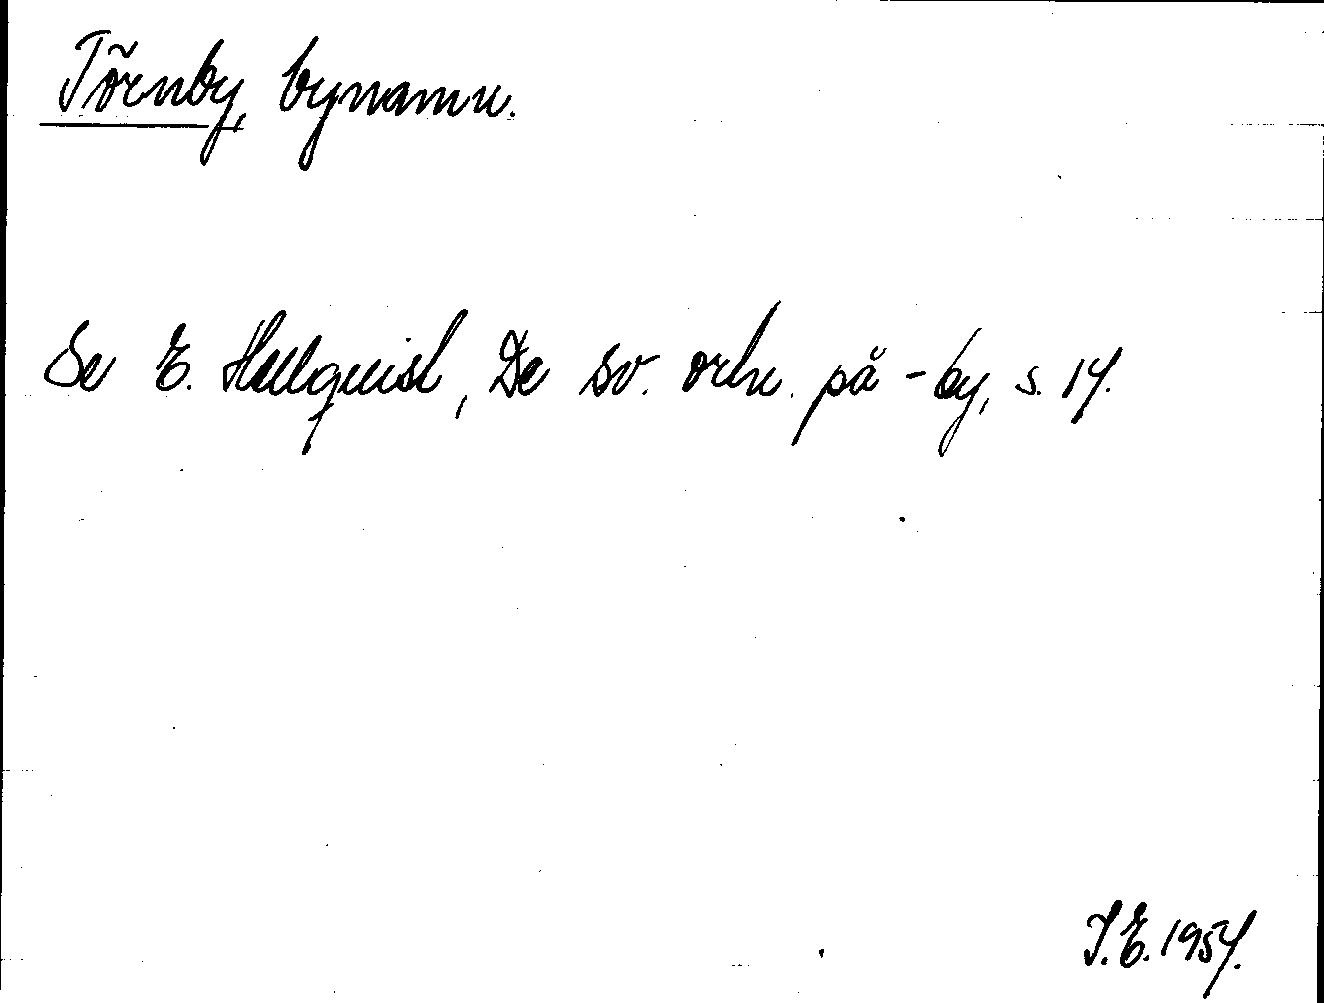 Törnby, bynamn.
Se E. Hellquist, De sv. ortn. på -by, s. 14.
I.E. 1954.